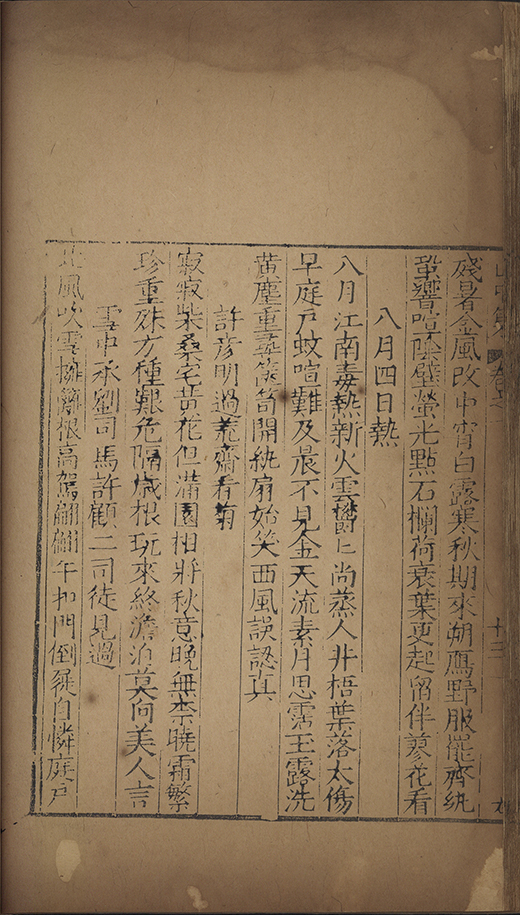 山中集 卷之 十三
殘暑金風改中宵白露寒秋期來朔鴈野服罷齊紈
蛩響喧陰壁螢光點石欄荷衰葉更起留伴蓼花看
八月四日熱
八月江南毒熱新火雲鬱〻尚蒸人井梧葉落太傷
早庭戶蚊喧難及晨不見金天流素月思霑玉露洗
黃塵重尋篋笥開紈扇始笑西風誤認真
許彥明過荒齋看菊
寂寂柴桑宅黃花但滿園相將秋意晚無柰曉霜繁
珍重殊方種艱危隔歲根玩來終澹泊莫向美人言
雪中承劉司馬許顧二司徒見過
北風吹雪擁籬根高駕翩翩午扣門倒屣自憐庭戶